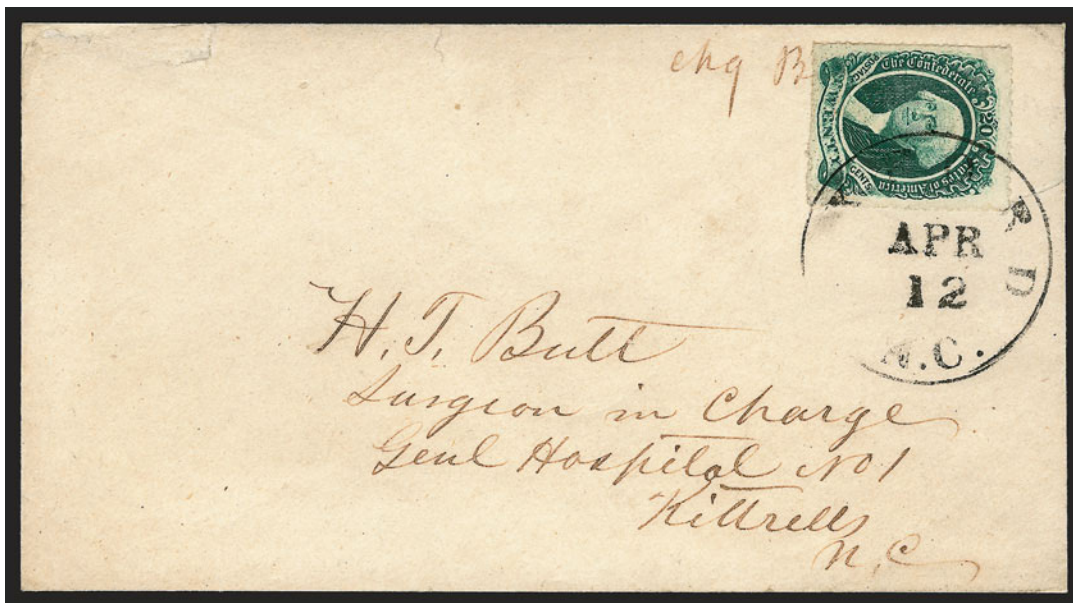 chg B
The Confederate
States of America
20
CENTS
APR
12
N.C.
H. T. Butt
Surgeon in Charge
Genl Hospital No 1
Kittrells
N. C